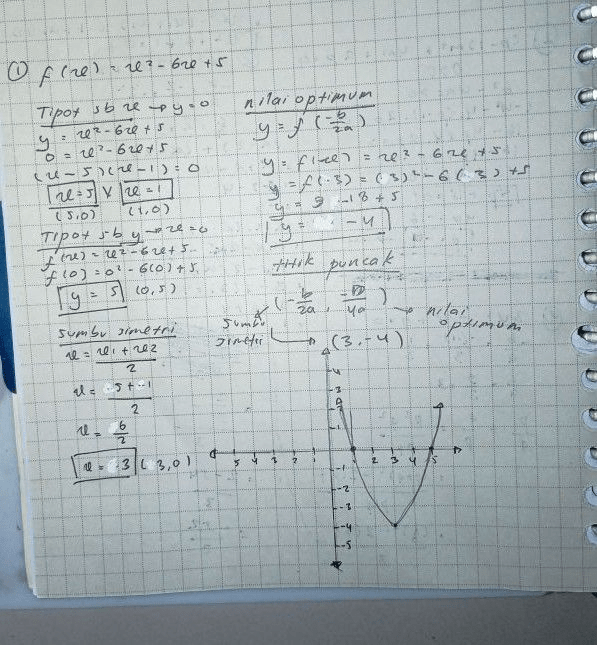 ① f(x) = x² - 6x + 5
Tipot sb x → y = 0
y = x² - 6x + 5
0 = x² - 6x + 5
(x - 5)(x - 1) = 0
x = 5 V x = 1
(5,0) (1,0)
Tipot sb y → x = 0
f(x) = x² - 6x + 5
f(0) = 0² - 6(0) + 5
y = 5 (0,5)
Sumbu simetri
x = x1 + x2 / 2
x = 5 + 1 / 2
x = 6 / 2
x = 3 (3,0)
nilai optimum
y = f(-b/2a)
y = f(x) = x² - 6x + 5
y = f(3) = (3)² - 6(3) + 5
y = 9 - 18 + 5
y = -4
titik puncak
(-b/2a, -D/4a) → nilai optimum
sumbu simetri
(3, -4)
4
3
2
5 4 3 2 1 2 3 4 5
-1
-2
-3
-4
-5